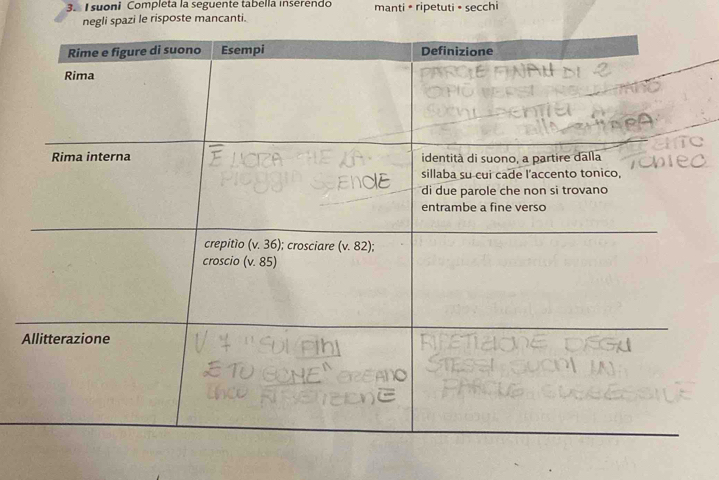 3. I suoni Completa la seguente tabella inserendo
negli spazi le risposte mancanti.
manti • ripetuti • secchi
Rime e figure di suono Esempi Definizione
Rima
PAROLE FINALI DI 2
O PIÙ VERSI
SUONI IDENTICI A
Rima interna
E LA
PIOGGIA SCENDE
identità di suono, a partire dalla
sillaba su cui cade l'accento tonico,
di due parole che non si trovano
entrambe a fine verso
TONICO
crepitìo (v. 36); crosciare (v. 82);
croscio (v. 85)
Allitterazione
V 7 "SUI FINI
E TU COME" CREANO
UNA RIPETIZIONE
RIPETIZIONE DEGLI
STESSI SUONI IN
PAROLE